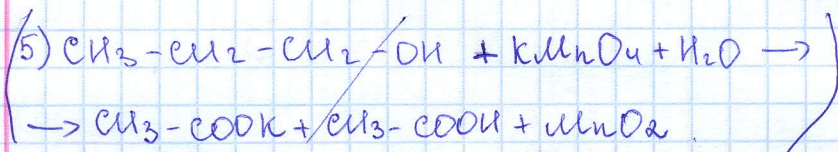 5) CH3-CH2-CH2-OH + KMnO4 + H2O →
→ CH3-COOK + CH3-COOH + MnO2